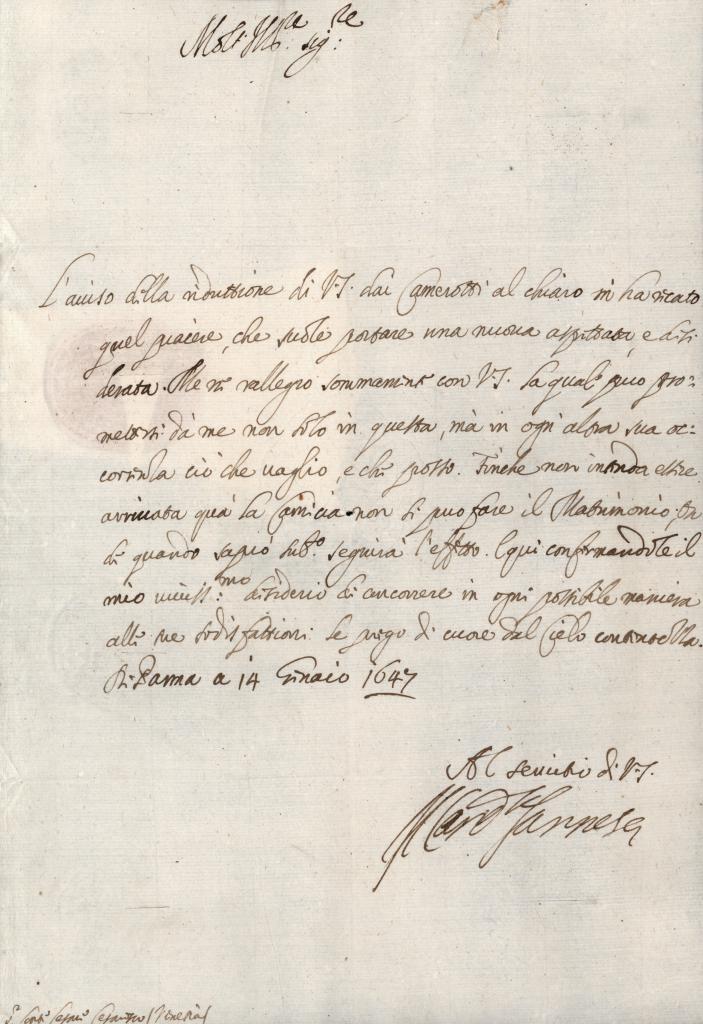 Molt' Ill.re sig.re
L'auiso della riduttione di V.S. dai Camerotti al chiaro m'ha recato
quel piacere, che suole portare una nuoua aspettata, e desi=
derata. Me ne rallegro sommamente con V.S. la quale può pro=
mettersi da me non solo in questa, mà in ogn'altra sua oc=
correnza ciò che uaglio, e che posso. Finche non intenda essere
arriuata quà la non si può fare il Matrimonio,
di quando saprò sub.o seguirà l'effetto. E qui confermandole il
mio uiuiss.mo desiderio di concorrere in ogni possibile maniera
alle sue sodisfattioni le prego di cuore dal Cielo
Di Parma a 14 Gennaio 1647
Al seruitio di V.S.
Il Card.l Farnese
(Venetia)